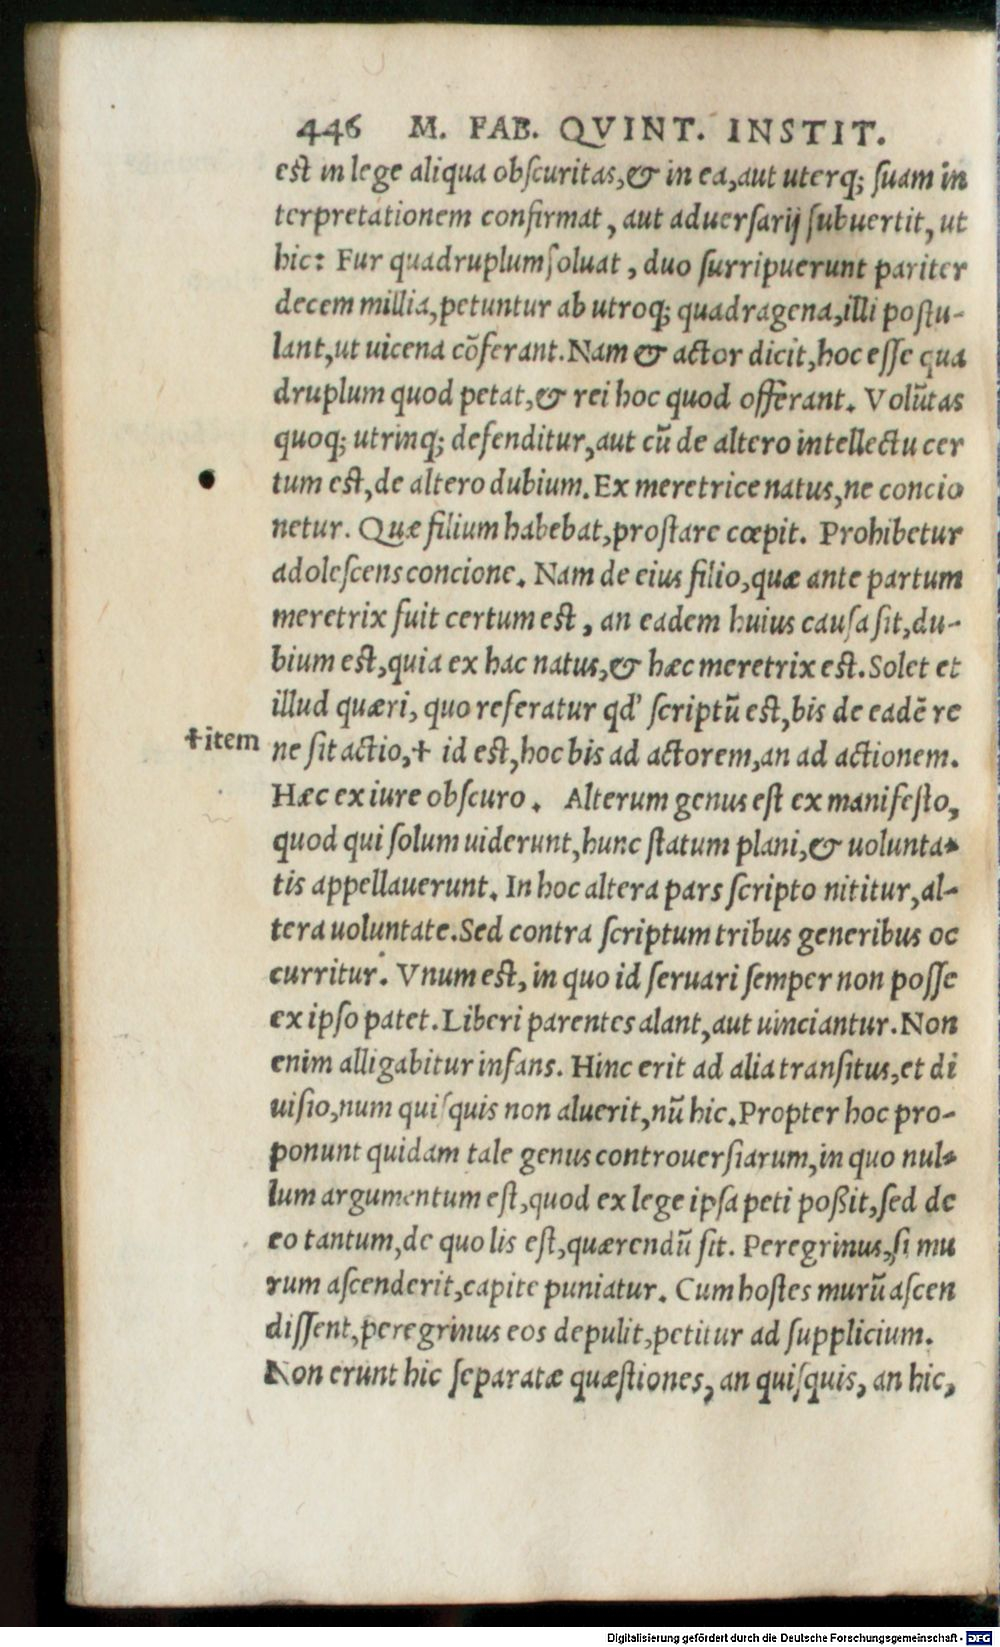 446 M. FAB. QVINT. INSTIT.
est in lege aliqua obscuritas,& in ea,aut uterq; suam in
terpretationem confirmat, aut aduersarij subuertit, ut
hic: Fur quadruplum soluat, duo surripuerunt pariter
decem millia,petuntur ab utroq; quadragena,illi postu-
lant,ut uicena cõferant.Nam & actor dicit,hoc esse qua
druplum quod petat,& rei hoc quod offerant. Volũtas
quoq; utrinq; defenditur,aut cũ de altero intellectu cer
tum est,de altero dubium.Ex meretrice natus,ne concio
netur. Quæ filium habebat,prostare cœpit. Prohibetur
adolescens concione. Nam de eius filio,quæ ante partum
meretrix fuit certum est, an eadem huius causa sit,du-
bium est,quia ex hac natus,& hæc meretrix est.Solet et
illud quæri, quo referatur qd' scriptũ est,bis de eadẽ re
†item
ne sit actio,† id est,hoc bis ad actorem,an ad actionem.
Hæc ex iure obscuro. Alterum genus est ex manifesto,
quod qui solum uiderunt,hunc statum plani,& uolunta-
tis appellauerunt. In hoc altera pars scripto nititur,al-
tera uoluntate.Sed contra scriptum tribus generibus oc
curritur. Vnum est, in quo id seruari semper non posse
ex ipso patet.Liberi parentes alant,aut uinciantur.Non
enim alligabitur infans. Hinc erit ad alia transitus,et di
uisio,num quisquis non aluerit,nũ hic.Propter hoc pro-
ponunt quidam tale genus controuersiarum,in quo nul-
lum argumentum est,quod ex lege ipsa peti poßit,sed de
eo tantum,de quo lis est,quærendũ sit. Peregrinus,si mu
rum ascenderit,capite puniatur. Cum hostes murũ ascen
dissent,peregrinus eos depulit,petitur ad supplicium.
Non erunt hic separatæ quæstiones, an quisquis, an hic,
Digitalisierung gefördert durch die Deutsche Forschungsgemeinschaft - DFG